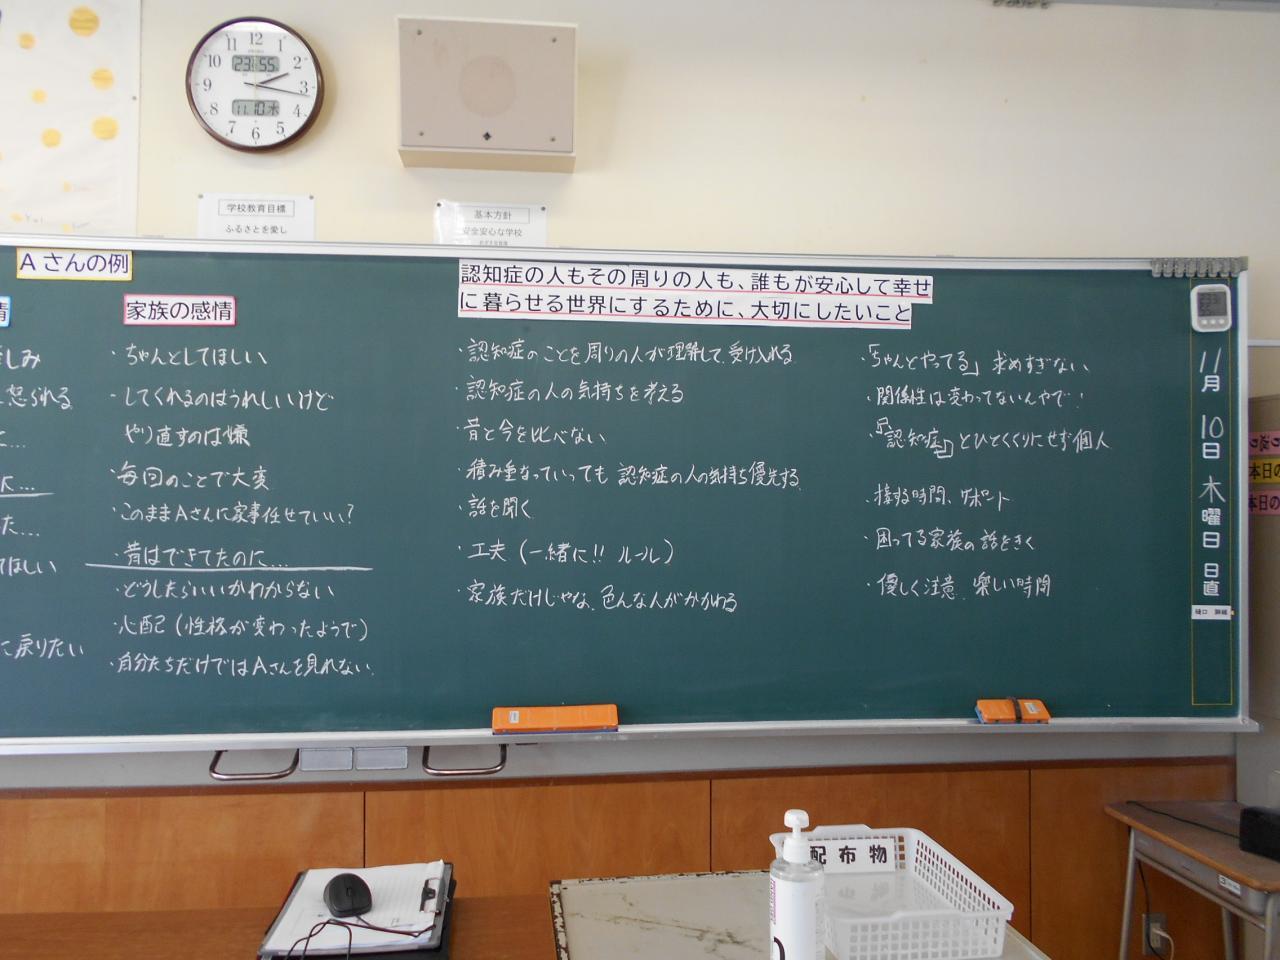 学校教育目標
ふるさとを愛し
基本方針
安全安心な学校
Aさんの例
家族の感情
・ちゃんとしてほしい
・してくれるのはうれしいけど
やり直すのは嫌
・毎回のことで大変
・このままAさんに家事任せていい?
・昔はできてたのに…
・どうしたらいいかわからない
・心配(性格が変わったようで)
・自分たちだけではAさんを見れない
情
しみ
怒られる
てほしい
に戻りたい
認知症の人もその周りの人も、誰もが安心して幸せ
に暮らせる世界にするために、大切にしたいこと
・認知症のことを周りの人が理解して、受け入れる
・認知症の人の気持ちを考える
・昔と今を比べない
・積み重なっていっても認知症の人の気持ち優先する
・話を聞く
・工夫(一緒に!!ルール)
・家族だけじゃな、色んな人がかかわる
・「ちゃんとやってる」求めすぎない
・関係性は変わってないんやで!
・『認知症』とひとくくりにせず個人
・接する時間、サポート
・困ってる家族の話をきく
・優しく注意、楽しい時間
11月
10日
木曜日
日直
12
1
2
3
4
5
6
7
8
9
10
11
23 55
11.10.木
本日の
本日の
配布物